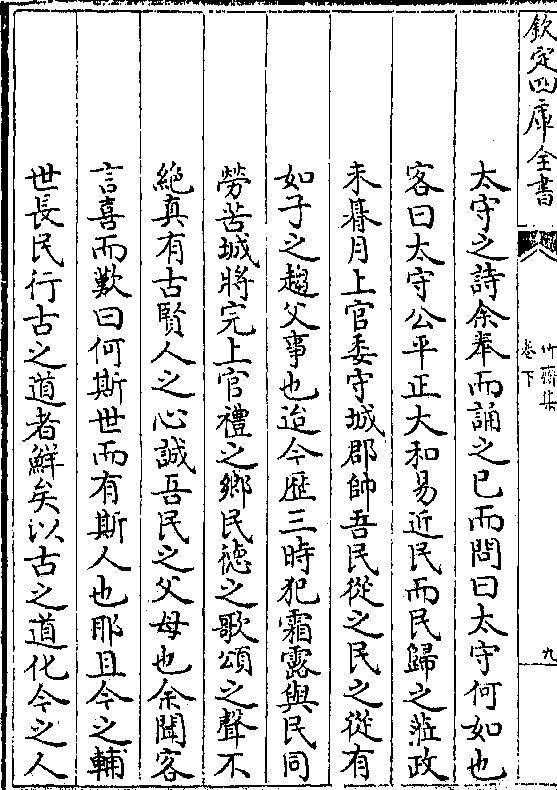 欽定四庫全書
竹齋集
卷下
九
太守之詩余奉而誦之已而問曰太守何如也
客曰太守公平正大和易近民而民歸之蒞政
未朞月上官委守城郡帥吾民從之民之從有
如子之趨父事也迨今歷三時犯霜露與民同
勞苦城將完上官禮之鄉民德之歌頌之聲不
絶真有古賢人之心誠吾民之父母也余聞客
言喜而歎曰何斯世而有斯人也耶且今之輔
世長民行古之道者鮮矣以古之道化今之人